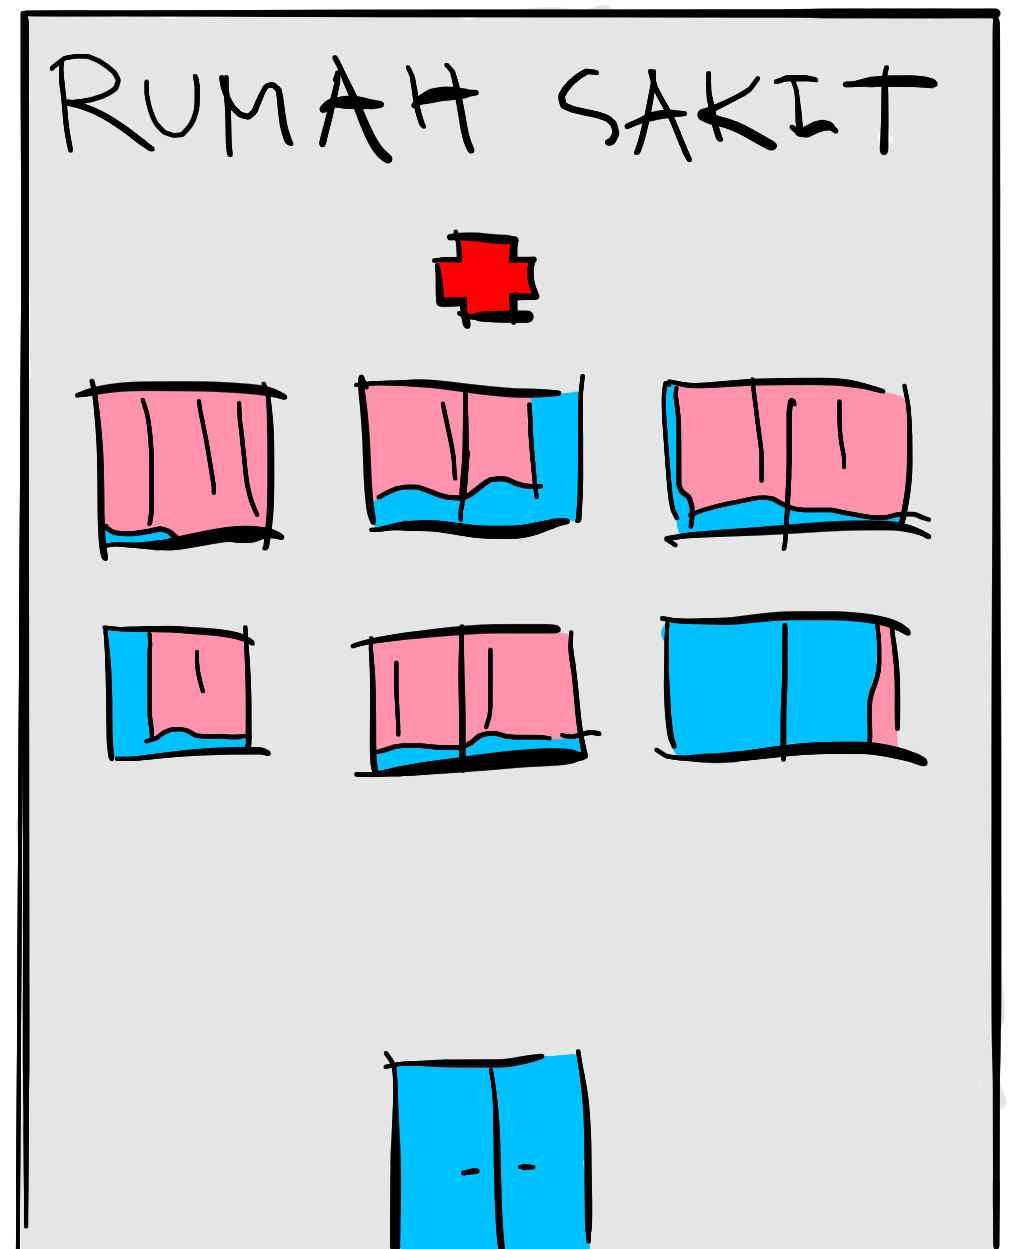 RUMAH SAKIT